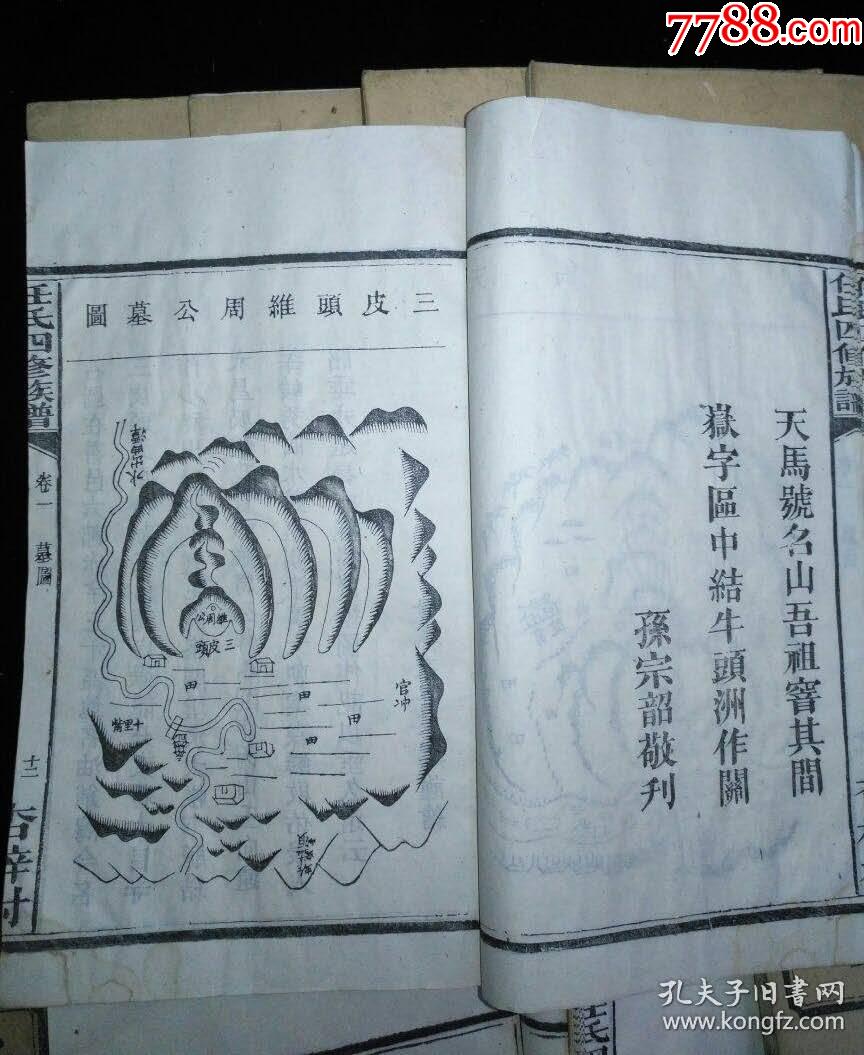 7788.com
天馬號名山吾祖窨其間
嶽字區中結牛頭洲作關
孫宗韶敬刋
三皮頭維周公墓圖
維周公
三皮頭
田
田
田
田
官冲
十里觜
任氏四修族譜
卷一 墓圖
十二
任氏四修族譜
孔夫子旧书网
www.kongfz.com